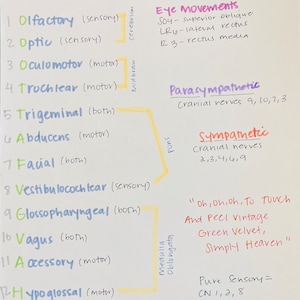 1 Olfactory (sensory)
2 Optic (sensory)
Cerebrum
3 Oculomotor (motor)
4 Trochlear (motor)
Midbrain
5 Trigeminal (both)
6 Abducens (motor)
7 Facial (both)
8 Vestibulocochlear (sensory)
Pons
9 Glossopharyngeal (both)
10 Vagus (both)
11 Accessory (motor)
12 Hypoglossal (motor)
Medulla
Oblongata
Eye Movements
SO4 - superior oblique
LR6 - lateral rectus
R3 - rectus media
Parasympathetic
Cranial nerves 9, 10, 7, 3
Sympathetic
Cranial nerves
2, 3, 4, 6, 9
"Oh, Oh, Oh, To Touch
And Feel Vintage
Green Velvet,
Simply Heaven"
Pure Sensory =
CN 1, 2, 8